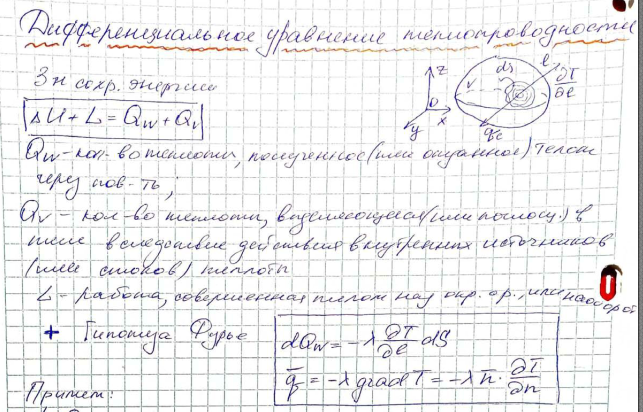 Дифференциальное уравнение теплопроводности
З-н сохр. энергии
ΔU + L = Qw + Qv
z
x
y
0
V
ds
l
∂T/∂l
Qw - кол-во теплоты, полученное (или отданное) телом
через пов-ть;
Qv - кол-во теплоты, выделяющееся (или поглощ.) в
теле вследствие действия внутренних источников
(или стоков) теплоты
L - работа, совершенная телом над окр. ср., или наоборот
+ Гипотеза Фурье
dQw = -λ ∂T/∂l dS
q̄ = -λ grad T = -λ n̄ · ∂T/∂n
Примем: